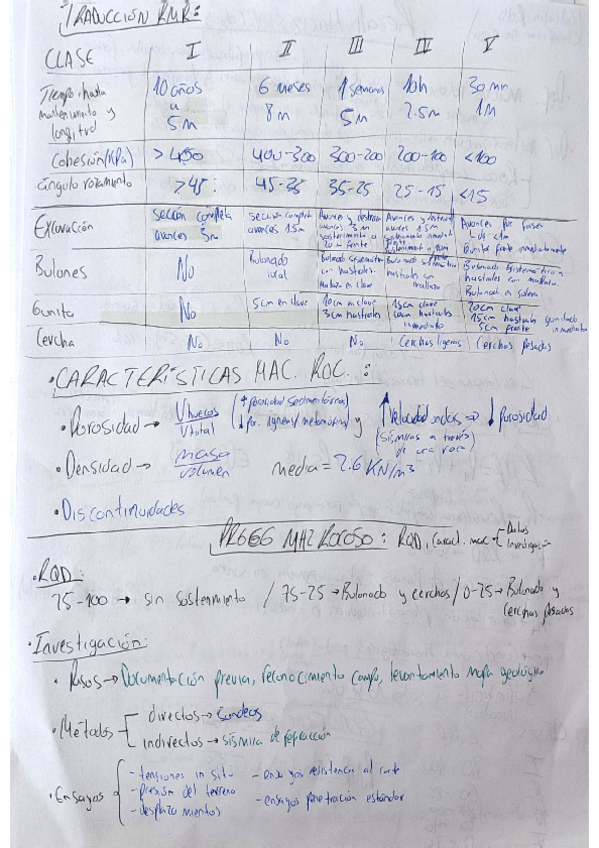 TRADUCCIÓN RMR:
CLASE I II III IV V
Tiempo hasta mantenimiento y longitud 10 años u 5m 6 meses 8m 1 semana 5m 10h 2.5m 30 min 1m
Cohesión (KPa) >400 400-300 300-200 200-100 <100
ángulo rozamiento >45 45-35 35-25 25-15 <15
Excavación sección completa avances 3m sección completa avances 1.5m Avances y destroza avances 3m sostenimiento a 20m frente Avances y destroza avances 1.5m sostenimiento inmediato frente Avances por fases <1m Gunita frente inmediatamente
Bulones No Bulonado local Bulonado sistemático con hastiales. Mallazo en clave Bulonado sistemático hastiales con mallazo Bulonado sistemático a hastiales con mallazo. Bulonado en solera
Gunita No 5cm en clave 10cm en clave 3cm hastiales 15cm clave 10cm hastiales inmediato 20cm clave 15cm hastiales 5cm frente gunitado inmediato
Cercha No No No Cerchas ligeras Cerchas pesadas
·CARACTERÍSTICAS MAC. ROC.:
·Porosidad → Vhuecos/Vtotal (↑ porosidad sedimentarias ↓ por. ígneas/metamórficas) y ↑ velocidad ondas (sísmicas a través de una roca) ⇒ ↓ porosidad
·Densidad → masa/volumen media = 2.6 KN/m3
·Discontinuidades
PR666 MHZ Rocoso: RQD, Caract. mac
·RQD:
75-100 → sin sostenimiento / 75-25 → Bulonado y cerchas / 0-25 → Bulonado y cerchas pesadas
·Investigación:
·Pasos → Documentación previa, reconocimiento campo, levantamiento mapa geológico
·Métodos directos → sondeos
indirectos → sísmica de refracción
·Ensayos - tensiones in situ - ensayos resistencia al corte
- presión del terreno - ensayos penetración estándar
- desplazamientos